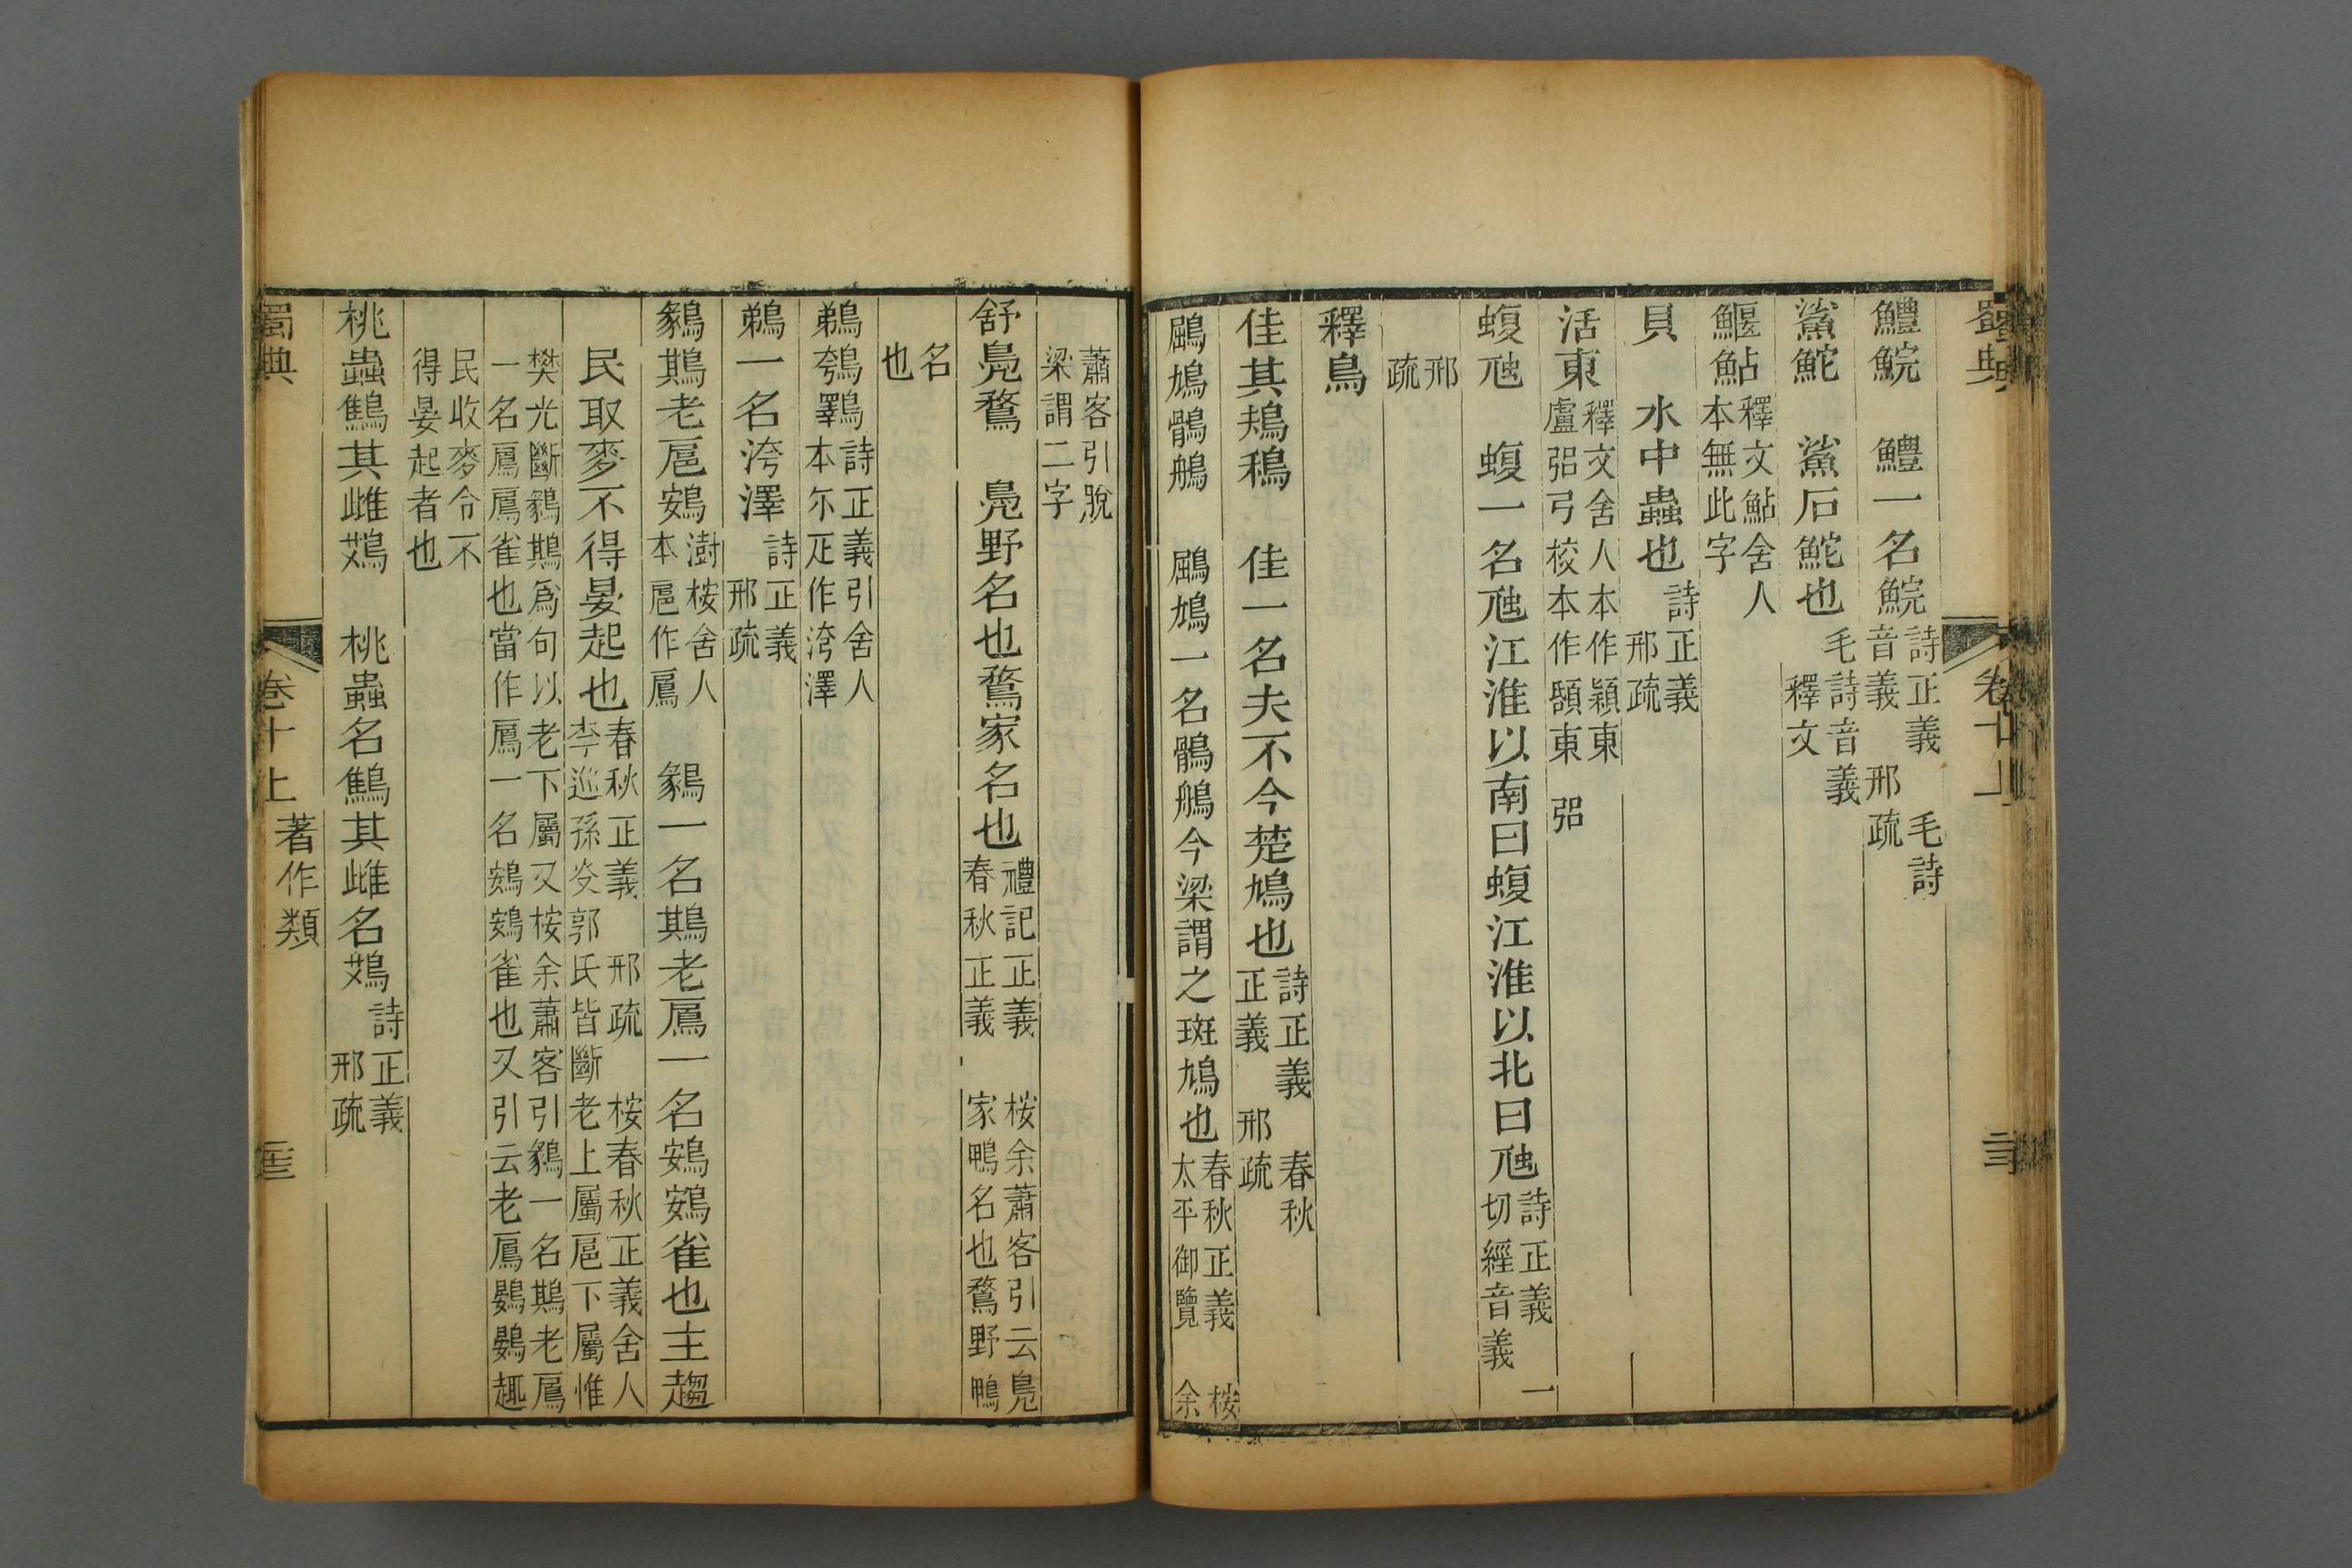 蜀典 卷十上
鱧鯇 鱧一名鯇 詩正義 毛詩音義 邢疏
鯊鮀 鯊石鮀也 毛詩音義 釋文
鰋鮎 釋文鮎舍人本無此字
貝 水中蟲也 詩正義 邢疏
活東 釋文舍人本作顆東 盧弨弓校本作頢東 弨
蝮虺 蝮一名虺江淮以南曰蝮江淮以北曰虺 詩正義 一切經音義
邢疏
釋鳥
隹其鳺鴀 隹一名夫不今楚鳩也 詩正義 春秋正義 邢疏
鶌鳩鶻鵃 鶌鳩一名鶻鵃今梁謂之斑鳩也 春秋正義 太平御覽 桉余
蕭客引脫梁謂二字
舒鳧鶩 鳧野名也鶩家名也 禮記正義 春秋正義 桉余蕭客引云鳧家鴨名也鶩野鴨
名也
鵜鴮鸅 詩正義引舍人本尓疋作洿澤
鵜一名洿澤 詩正義 邢疏
鶨鶀老扈鴳 澍桉舍人本扈作鳸 鶨一名鶀老鳸一名鴳鴳雀也主趨
民取麥不得晏起也 春秋正義 邢疏 桉春秋正義舍人李巡孫炎郭氏皆斷老上屬扈下屬惟
樊光斷鶨鶀爲句以老下屬又桉余蕭客引鶨一名鶀老鳸一名鳸鳸雀也當作鳸一名鴳鴳雀也又引云老鳸鷃鷃趣
民收麥令不得晏起者也
桃蟲鷦其雌鴱 桃蟲名鷦其雌名鴱 詩正義 邢疏
蜀典 卷十上 著作類